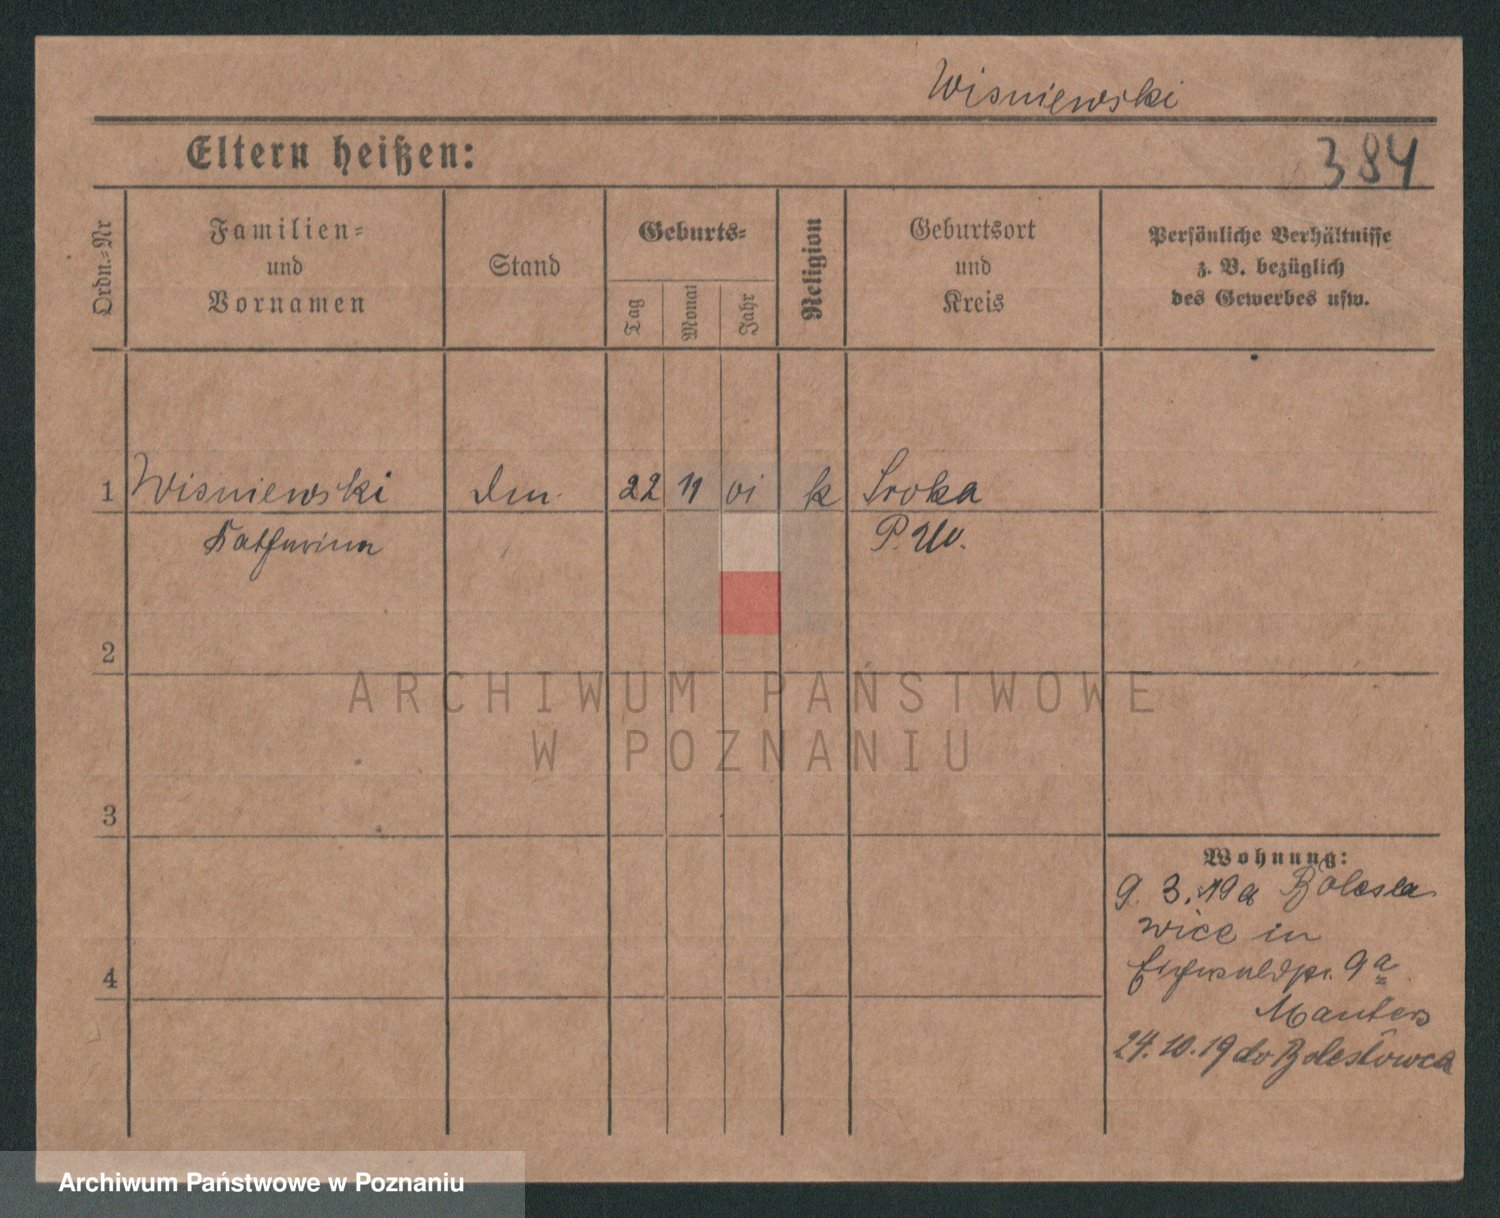 Wisniewski
Eltern heißen:
384
Ordn.-Nr
Familien-
und
Vornamen
Stand
Geburts-
Tag
Monat
Jahr
Religion
Geburtsort
und
Kreis
Persönliche Verhältnisse
z. B. bezüglich
des Gewerbes usw.
1 Wisniewski 22 11 01 k Sroka
Katharina P. W.
2
3
4
Wohnung:
9. 3. 19 a Bolesla
wice in
9a
24. 10. 19 do Bolesłowca
ARCHIWUM PAŃSTWOWE
W POZNANIU
Archiwum Państwowe w Poznaniu